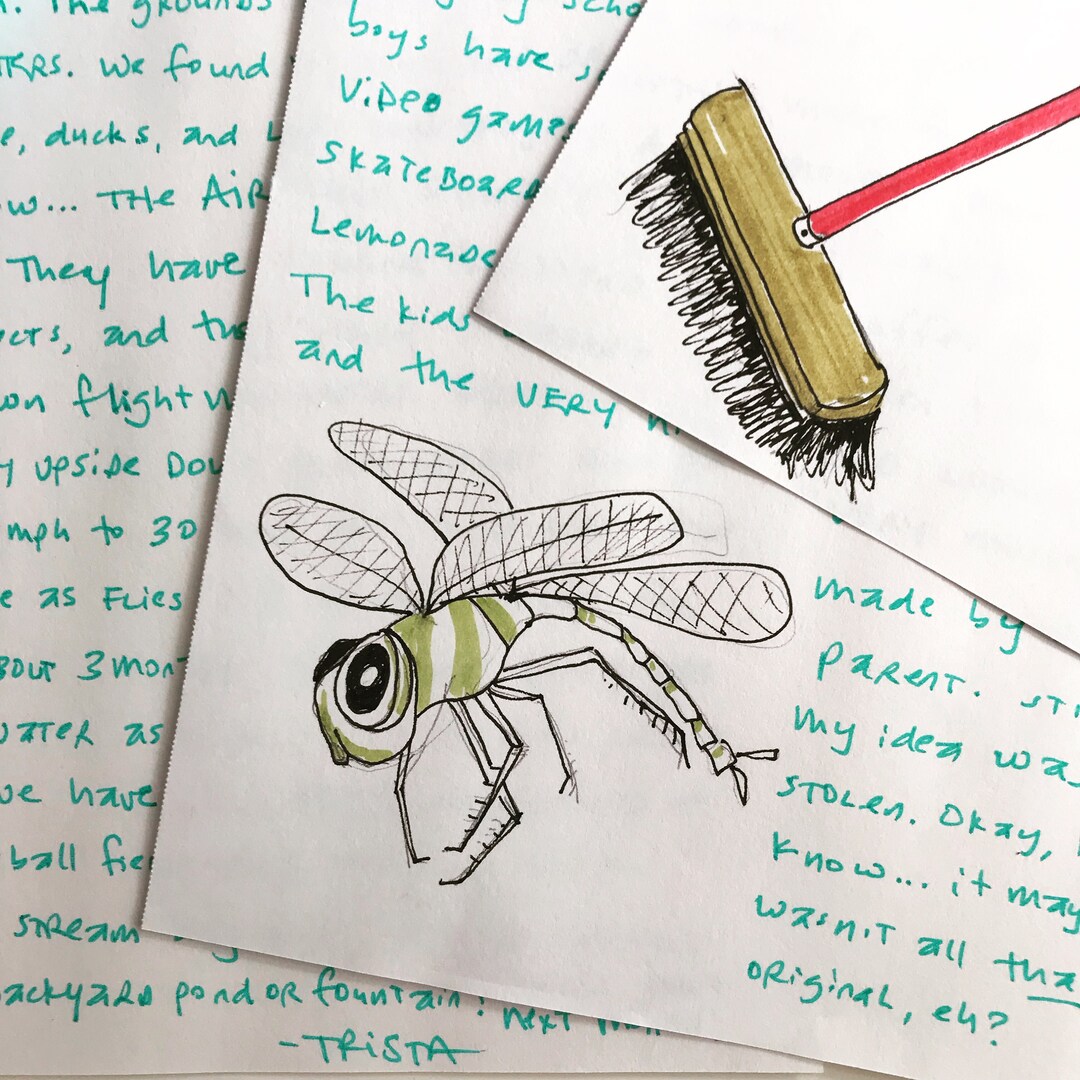 . The grounds
TKRS. We found
e, ducks, and
ow... THE AIR
They have
ects, and the
on flight
y upside Dow
mph to 30
e as Flies
Bout 3 mon
water as
we have
ball fie
stream
backyard pond or fountain! next
-TRISTA
boys have s
Video games
SkateBoard
Lemonade
The kids
and the VERY
made by
parent. sti
my idea was
stolen. Okay, I
know... it may
wasn't all tha
original, eh?